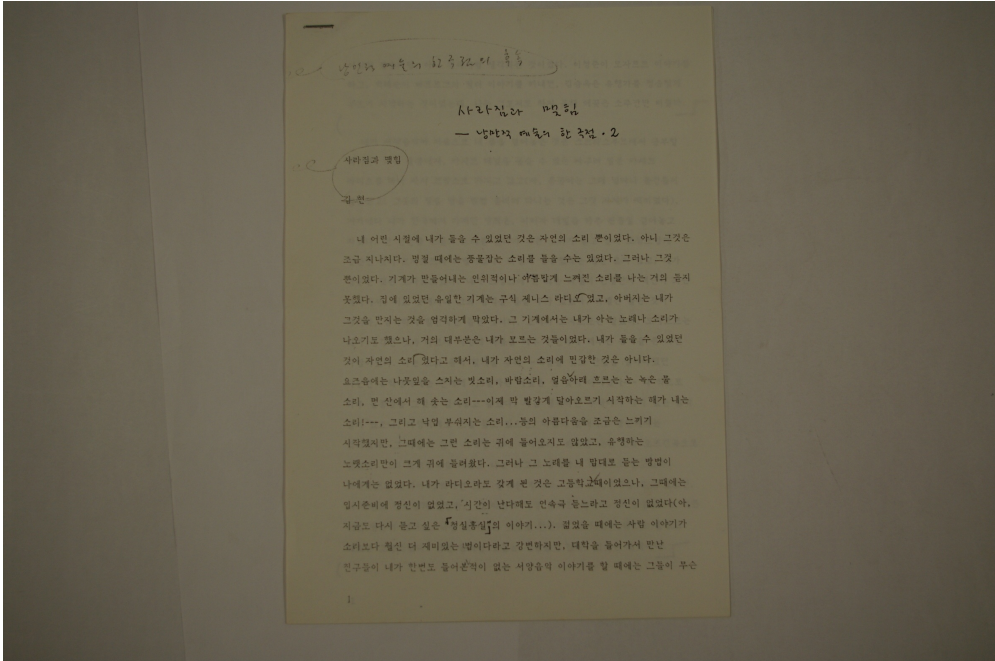 낭만적 예술의 한 극점의
사라짐과 맺힘
— 낭만적 예술의 한 극점 · 2
사라짐과 맺힘
김 현
내 어린 시절에 내가 들을 수 있었던 것은 자연의 소리 뿐이었다. 아니 그것은
조금 지나치다. 명절 때에는 풍물잡는 소리를 들을 수는 있었다. 그러나 그것
뿐이었다. 기계가 만들어내는 인위적이나 아름답게 느껴진 소리를 나는 거의 듣지
못했다. 집에 있었던 유일한 기계는 구식 제니스 라디오였고, 아버지는 내가
그것을 만지는 것을 엄격하게 막았다. 그 기계에서는 내가 아는 노래나 소리가
나오기도 했으나, 거의 대부분은 내가 모르는 것들이었다. 내가 들을 수 있었던
것이 자연의 소리였다고 해서, 내가 자연의 소리에 민감한 것은 아니다.
요즈음에는 나뭇잎을 스치는 빗소리, 바람소리, 얼음아래 흐르는 눈 녹은 물
소리, 먼 산에서 해 솟는 소리---이제 막 빨갛게 달아오르기 시작하는 해가 내는
소리!---, 그리고 낙엽 부숴지는 소리...등의 아름다움을 조금은 느끼기
시작했지만, 그때에는 그런 소리는 귀에 들어오지도 않았고, 유행하는
노랫소리만이 크게 귀에 들려왔다. 그러나 그 노래를 내 맘대로 듣는 방법이
나에게는 없었다. 내가 라디오라도 갖게 된 것은 고등학교때이었으나, 그때에는
입시준비에 정신이 없었고, 시간이 난다해도 연속극 듣느라고 정신이 없었다(아,
지금도 다시 듣고 싶은 「청실홍실」의 이야기...). 젊었을 때에는 사람 이야기가
소리보다 훨씬 더 재미있는 법이다라고 강변하지만, 대학을 들어가서 만난
친구들이 내가 한번도 들어본적이 없는 서양음악 이야기를 할 때에는 그들이 무슨
1